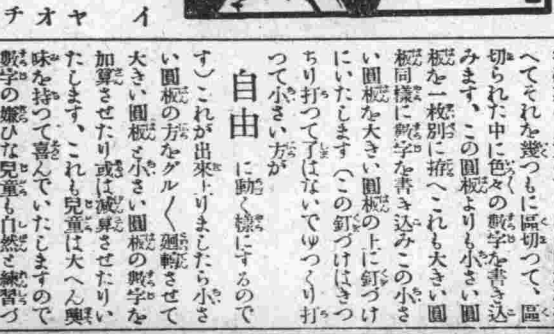 イヤオチ
へてそれを幾つもに區切つて、區
切られた中に色々の數字を書き込
みます、この圓板よりも小さい圓
板を一枚別に拵へこれも大きい圓
板同樣に數字を書き込みこの小さ
い圓板を大きい圓板の上に釘づけ
にいたします(この釘づけはきつ
ちり打つて了はないでゆつくり打
つて小さい方が
自由に動く樣にするので
す)これが出來上りましたら小さ
い圓板の方をグル〱廻轉させて
大きい圓板と小さい圓板の數字を
加算させたり或は減算させたりい
たします、これも兒童は大へん興
味を持つて喜んでいたしますので
數字の嫌ひな兒童も自然と練習づ